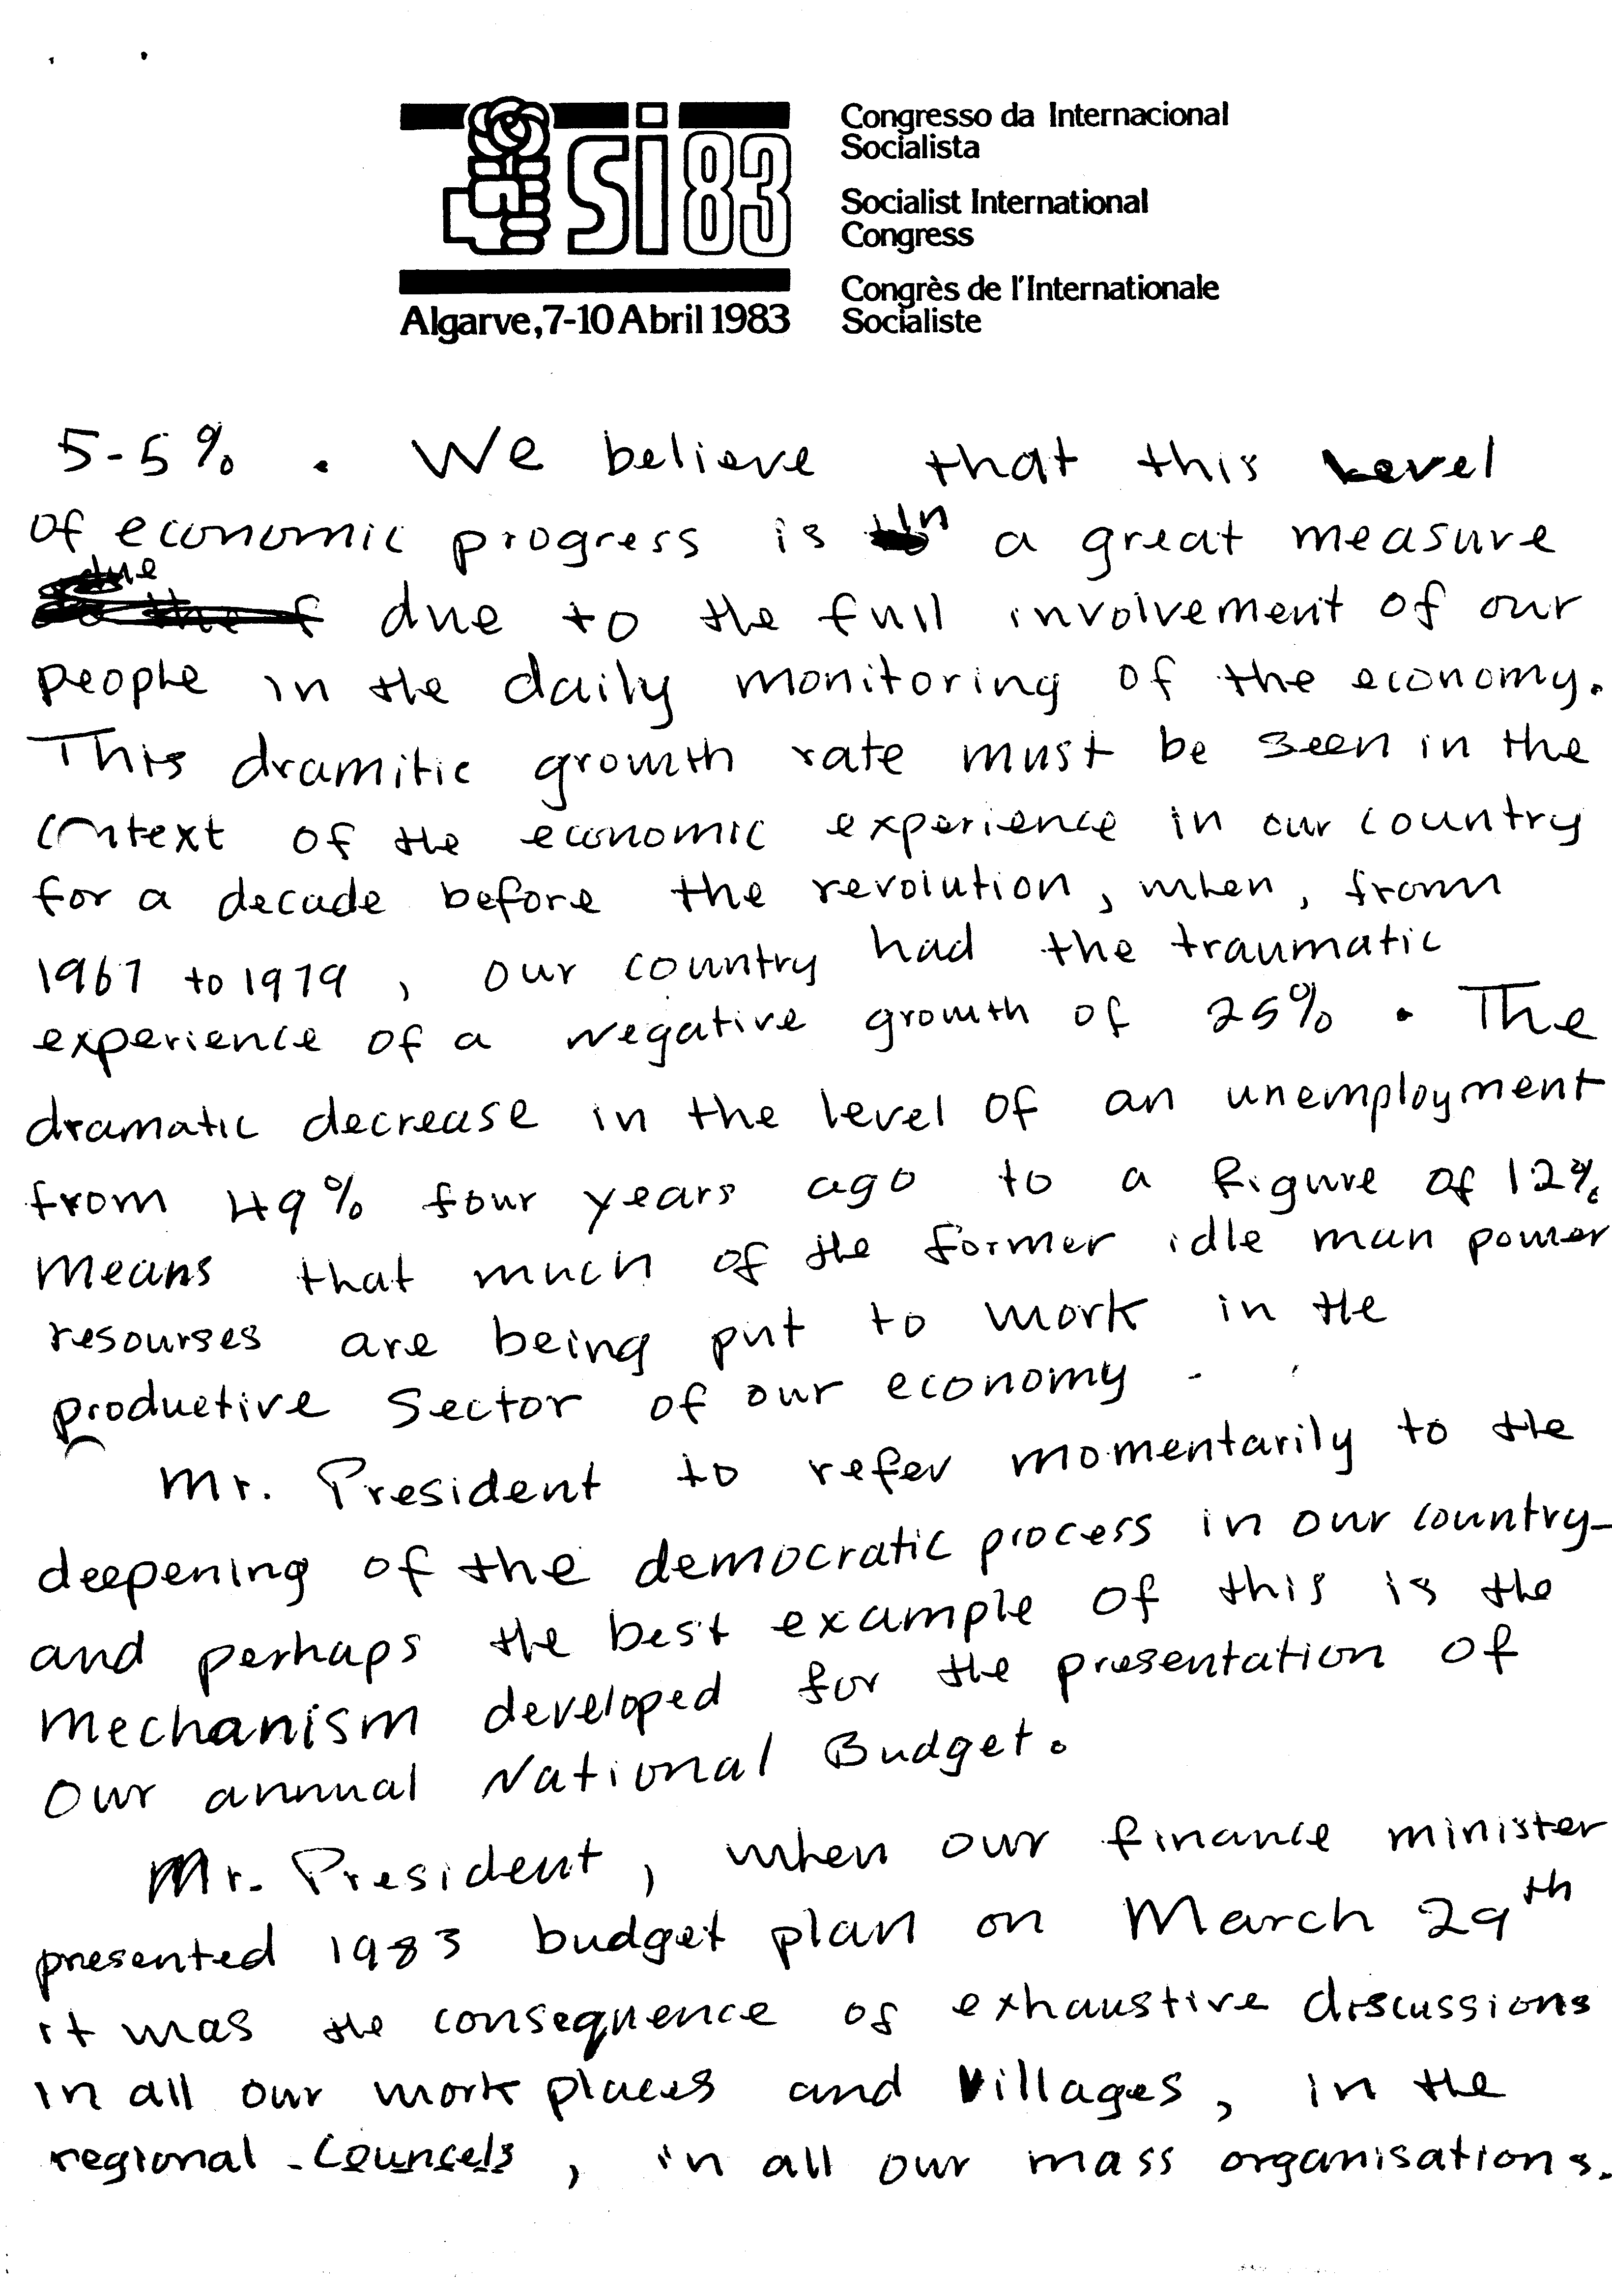 SI 83
Algarve, 7-10 Abril 1983
Congresso da Internacional
Socialista
Socialist International
Congress
Congrès de l'Internationale
Socialiste
5-5% . We believe that this level
of economic progress is in a great measure
due
due to the full involvement of our
people in the daily monitoring of the economy.
This dramitic growth rate must be seen in the
context of the economic experience in our country
for a decade before the revolution, when, from
1967 to 1979, our country had the traumatic
experience of a negative growth of 25% . The
dramatic decrease in the level of an unemployment
from 49% four years ago to a figure of 12%
means that much of the former idle man power
resourses are being put to work in the
productive Sector of our economy -
Mr. President to refer momentarily to the
deepening of the democratic process in our country-
and perhaps the best example of this is the
mechanism developed for the presentation of
our annual National Budget.
Mr. President, when our finance minister
presented 1983 budget plan on March 29th
it was the consequence of exhaustive discussions
in all our work places and Villages, in the
regional Councels, in all our mass organisations.